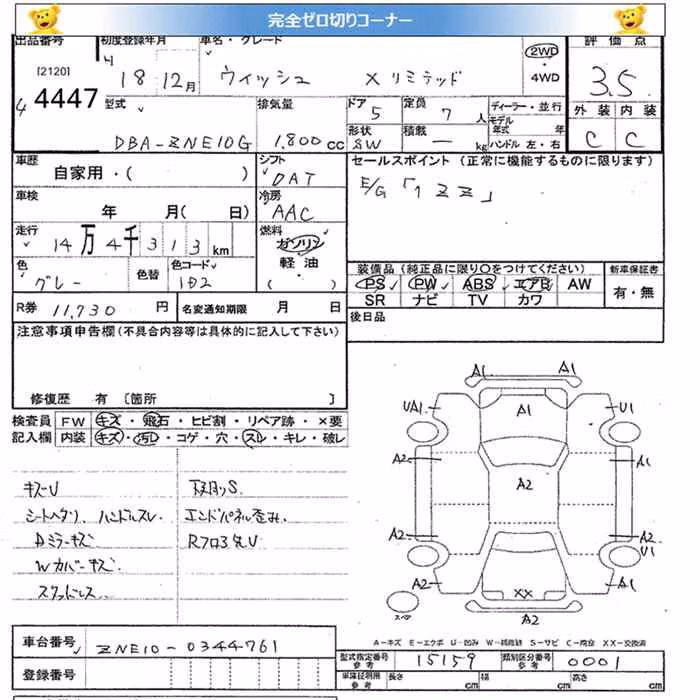 完全ゼロ切りコーナー
出品番号 初度登録年月 車名・グレード 2WD ・4WD 評価点
[2120] 4 4447 18年12月 ウィッシュ Xリミテッド 3.5
型式 排気量 ドア 5 定員 7人 ディーラー・並行 外装 内装
DBA-ZNE10G 1,800cc 形状 SW 積載 ー kg モデル年式 年 ハンドル 左・右 C C
車歴 シフト セールスポイント (正常に機能するものに限ります)
自家用・( ) DAT E/G「1ZZ」
車検 冷房
年 月( 日) AAC
走行 燃料
14万4千313km ガソリン
色 色替 色コード 軽油 装備品 (純正品に限り〇をつけてください) 新車保証書
グレー 1D2 ( ) PS PW ABS エアB AW 有・無
R券 11,730円 名変通知期限 月 日 SR ナビ TV カワ
注意事項申告欄(不具合内容等は具体的に記入して下さい) 後日品
修復歴 有 [箇所 ]
検査員 FW キズ・飛石・ヒビ割・リペア跡・×要
記入欄 内装 キズ・汚れ・コゲ・穴・スレ・キレ・破レ
A1 A1
UA1 A1 U1
A2 A1
A2
A2 A2
U1
A2 XX A1
A2
スペア
キズU
シートヘタリ、ハンドルスレ
Dミラーキズ
Wカバーキズ
スタッドレス
下廻りS
エンドパネル歪み
A-キズ E-エクボ U-凹み W-補修跡 S-サビ C-腐食 XX-交換済
車台番号 ZNE10-0344761
型式指定番号 参考 15159 類別区分番号 参考 0001
登録番号
車庫証明用 参考 長さ cm 幅 cm 高さ cm